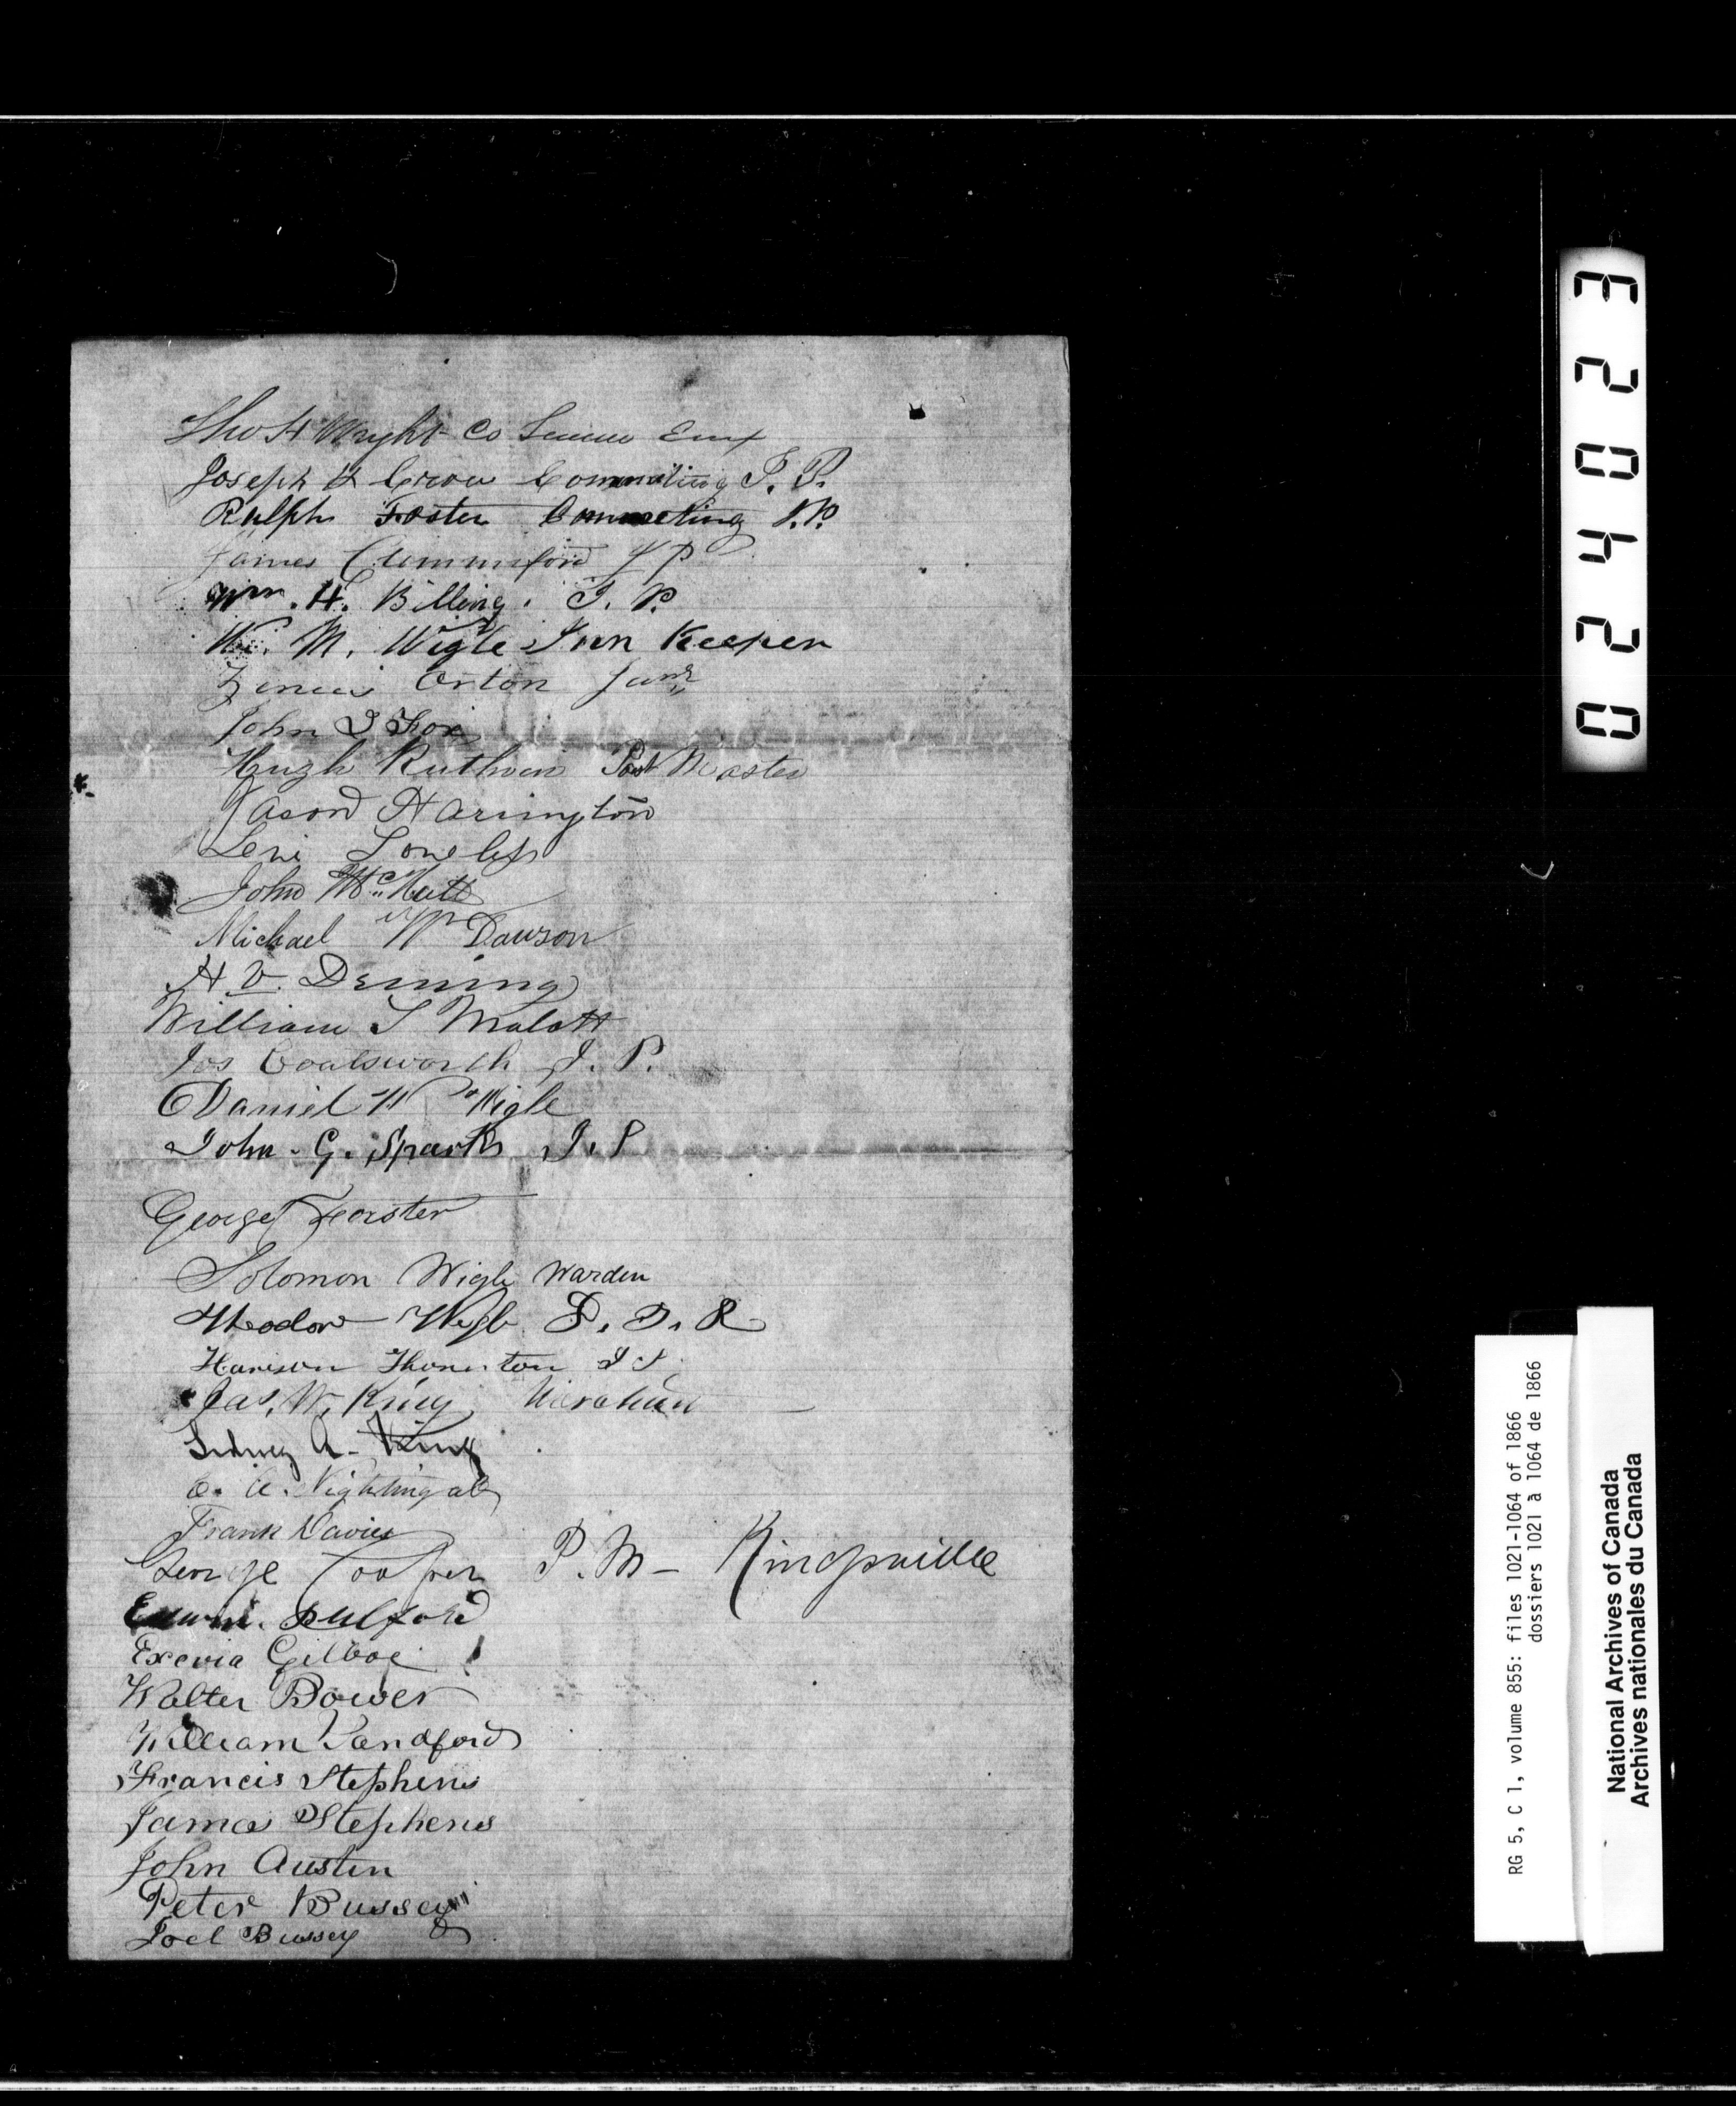 Thos H Wright Co
Joseph H Crow Committing J. P.
Ralph Foster Committing J.P.
James Cummiford J P
Wm. H. Billing. J. P.
W. M. Wigle Inn Keeper
Orton Junr
John I Fox
Hugh Ruthven Post Master
Jason Harrington
Levi Loveless
John McNutt
Michael Dawson
H V. Deming
William S Malott
Jos Coatsworth J. P.
Daniel Wigle
John. G. Sparks J. P
George Forster
Solomon Wigle Warden
Theodore Wigle
Harison Thornton
Jas. W. King
Sidney A. King
A. Nightingale
Frank Davies
George Cooper P. M - Kingsville
Edwin. Pulford
Exevia Gilboe
Walter Bower
William Sandford
Francis Stephens
James Stephens
John Austin
Peter Bussey
Joel Bussey
024023
RG 5, C 1, volume 855: files 1021-1064 of 1866
dossiers 1021 à 1064 de 1866
National Archives of Canada
Archives nationales du Canada